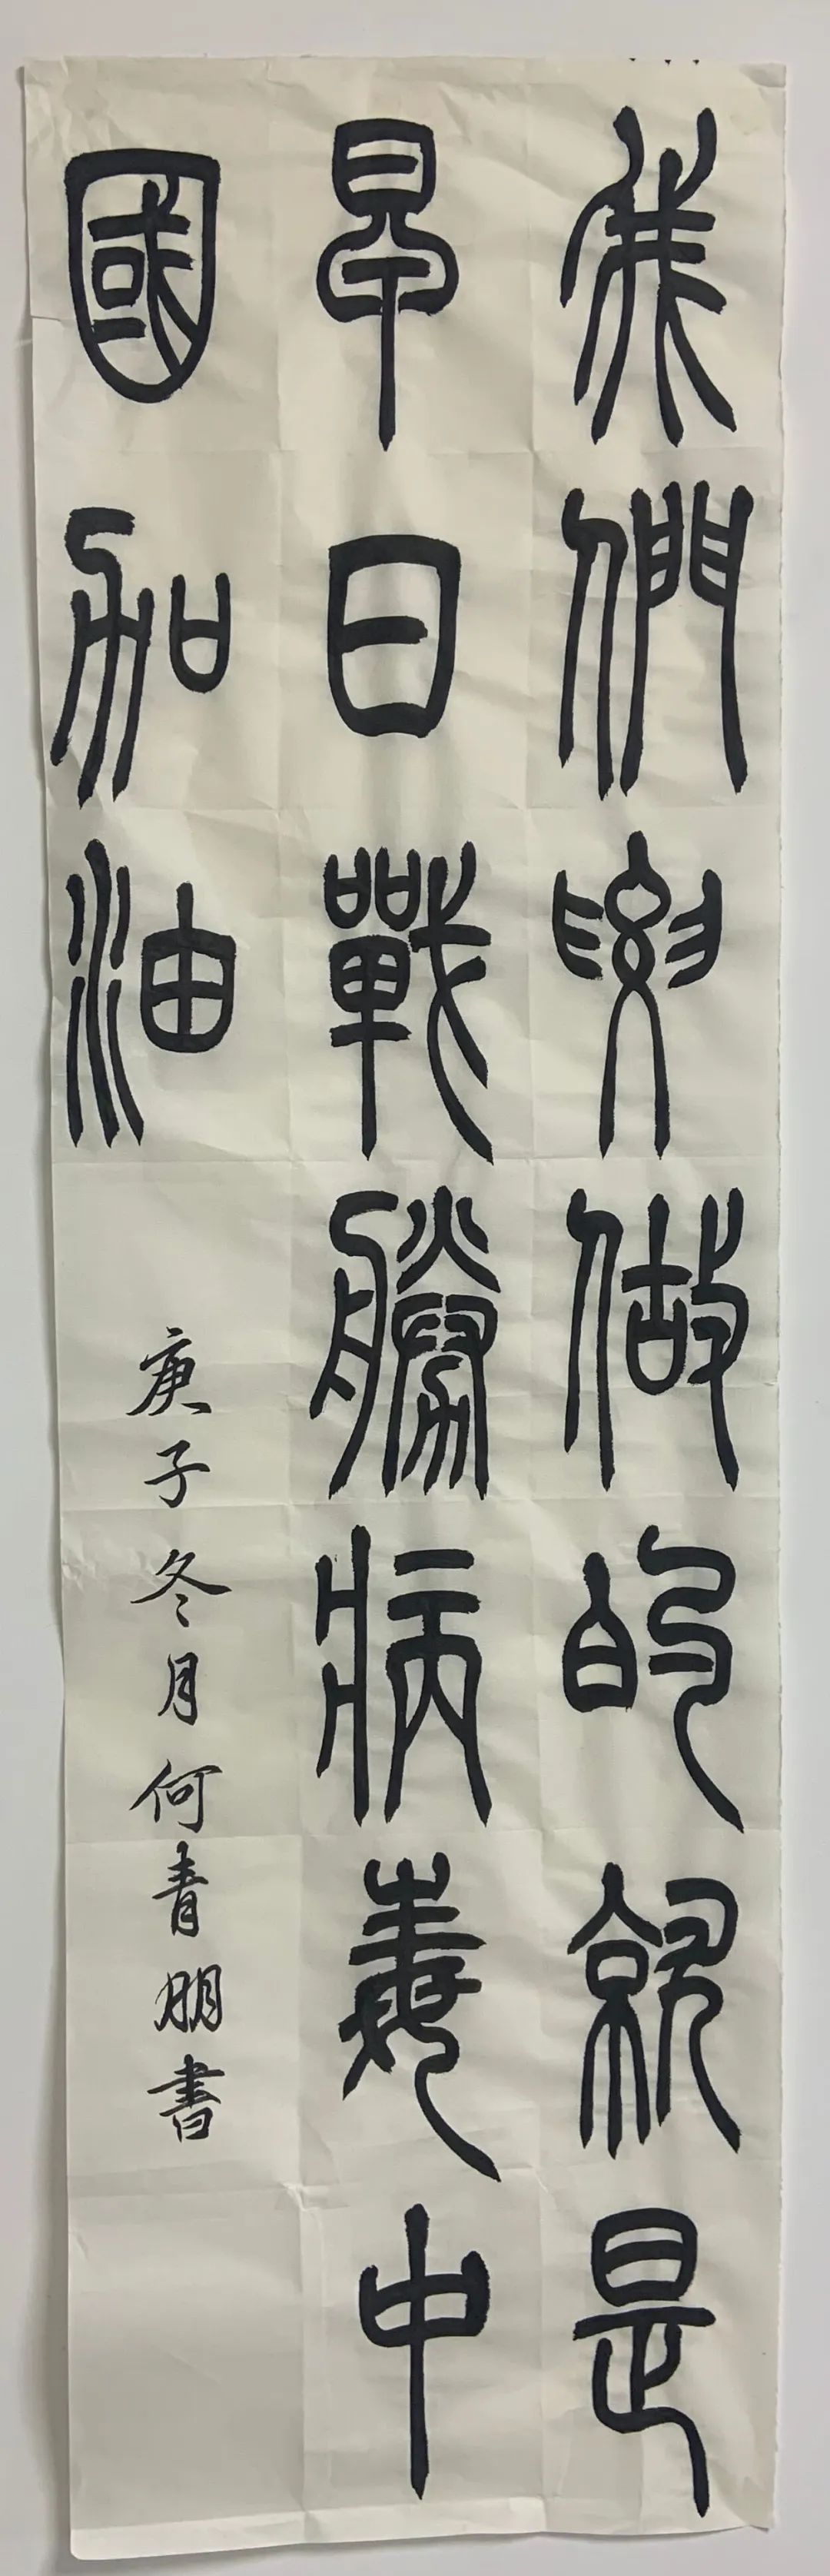 我們要做的就是
早日戰勝病毒中
國加油
庚子冬月何青朋書